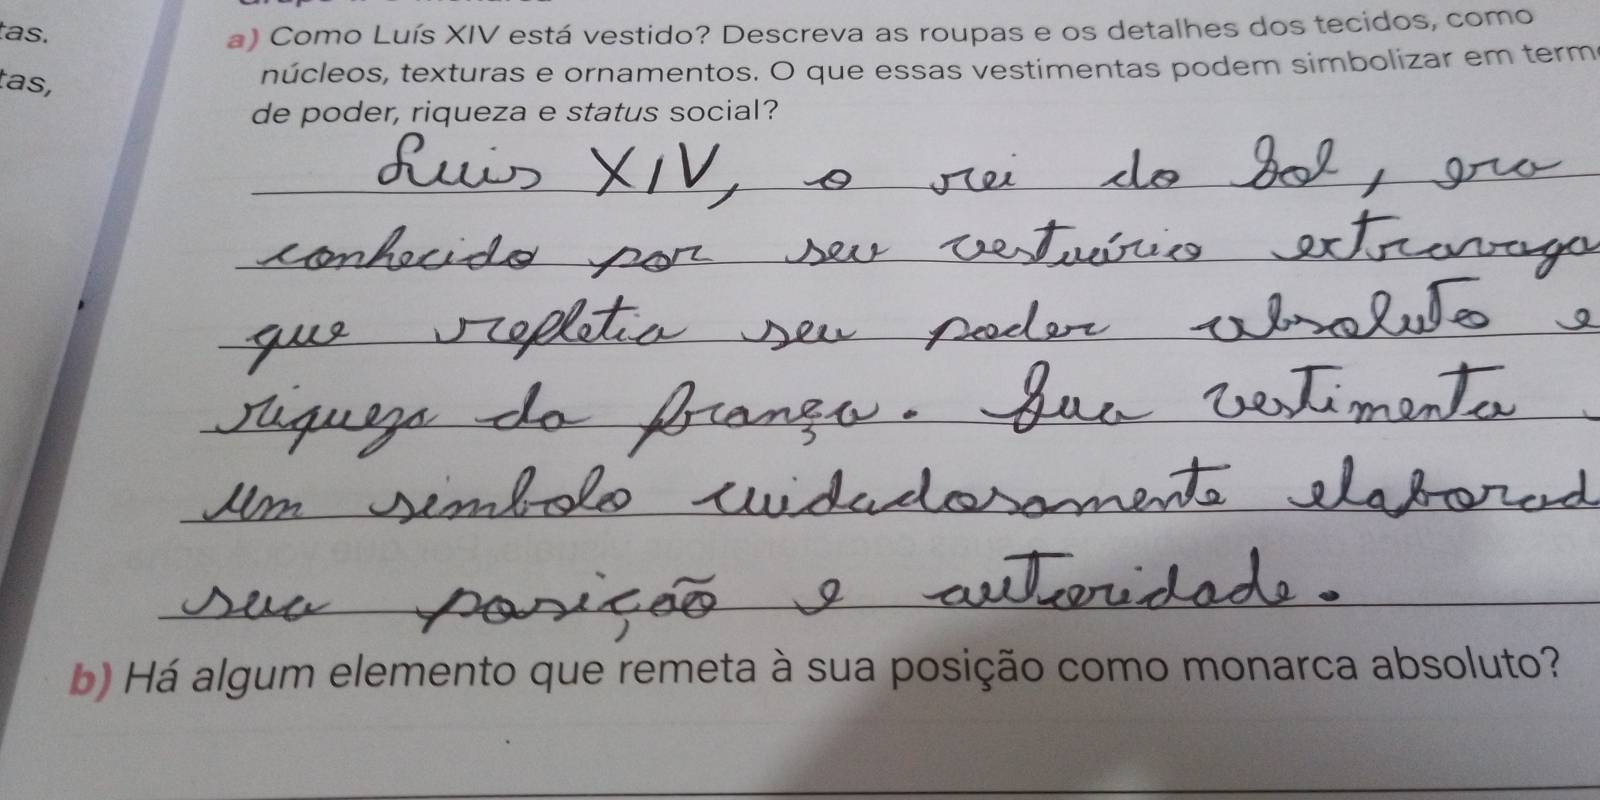 tas.
a) Como Luís XIV está vestido? Descreva as roupas e os detalhes dos tecidos, como
tas,
núcleos, texturas e ornamentos. O que essas vestimentas podem simbolizar em term
de poder, riqueza e status social?
Luis XIV, o rei do Sol, era
conhecido por seu vestuário extravaga
que repletia seu poder absoluto e
riqueza da França. Sua vestimenta
um simbolo cuidadosamente elaborad
sua posição e autoridade.
b) Há algum elemento que remeta à sua posição como monarca absoluto?